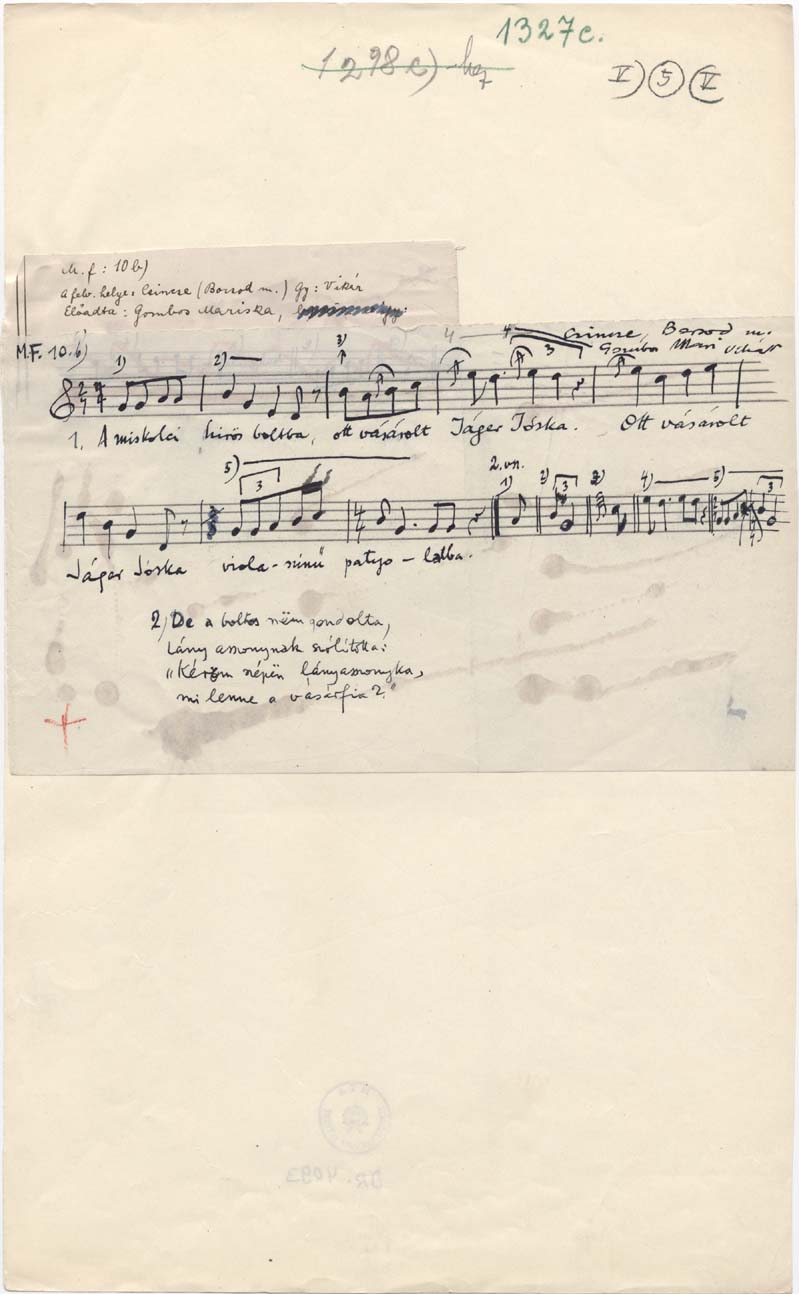 1327c.
1298c)-hez
V) 5 V
M. f: 10b)
A felv. helye: Csincse (Borsod m.) Gy: Vikár
Előadta: Gombos Mariska,
Csincse, Borsod m.
M.F. 10.b) Gombo Mari Vikár
1) 2) 3) 4 4 3
1. A miskolci hirös boltba, ott vásárolt Jáger Jóska. Ott vásárolt
5) 3 2. vn. 1) 2) 3 3) 4) 5) 3
Jáger Jóska viola-szinű patyo-latba.
2) De a boltos nëm gondolta,
Lány asszonynak szólította:
"Kérëm szépën lányasszonyka,
mi lenne a vásárfia?"
DR. 4093